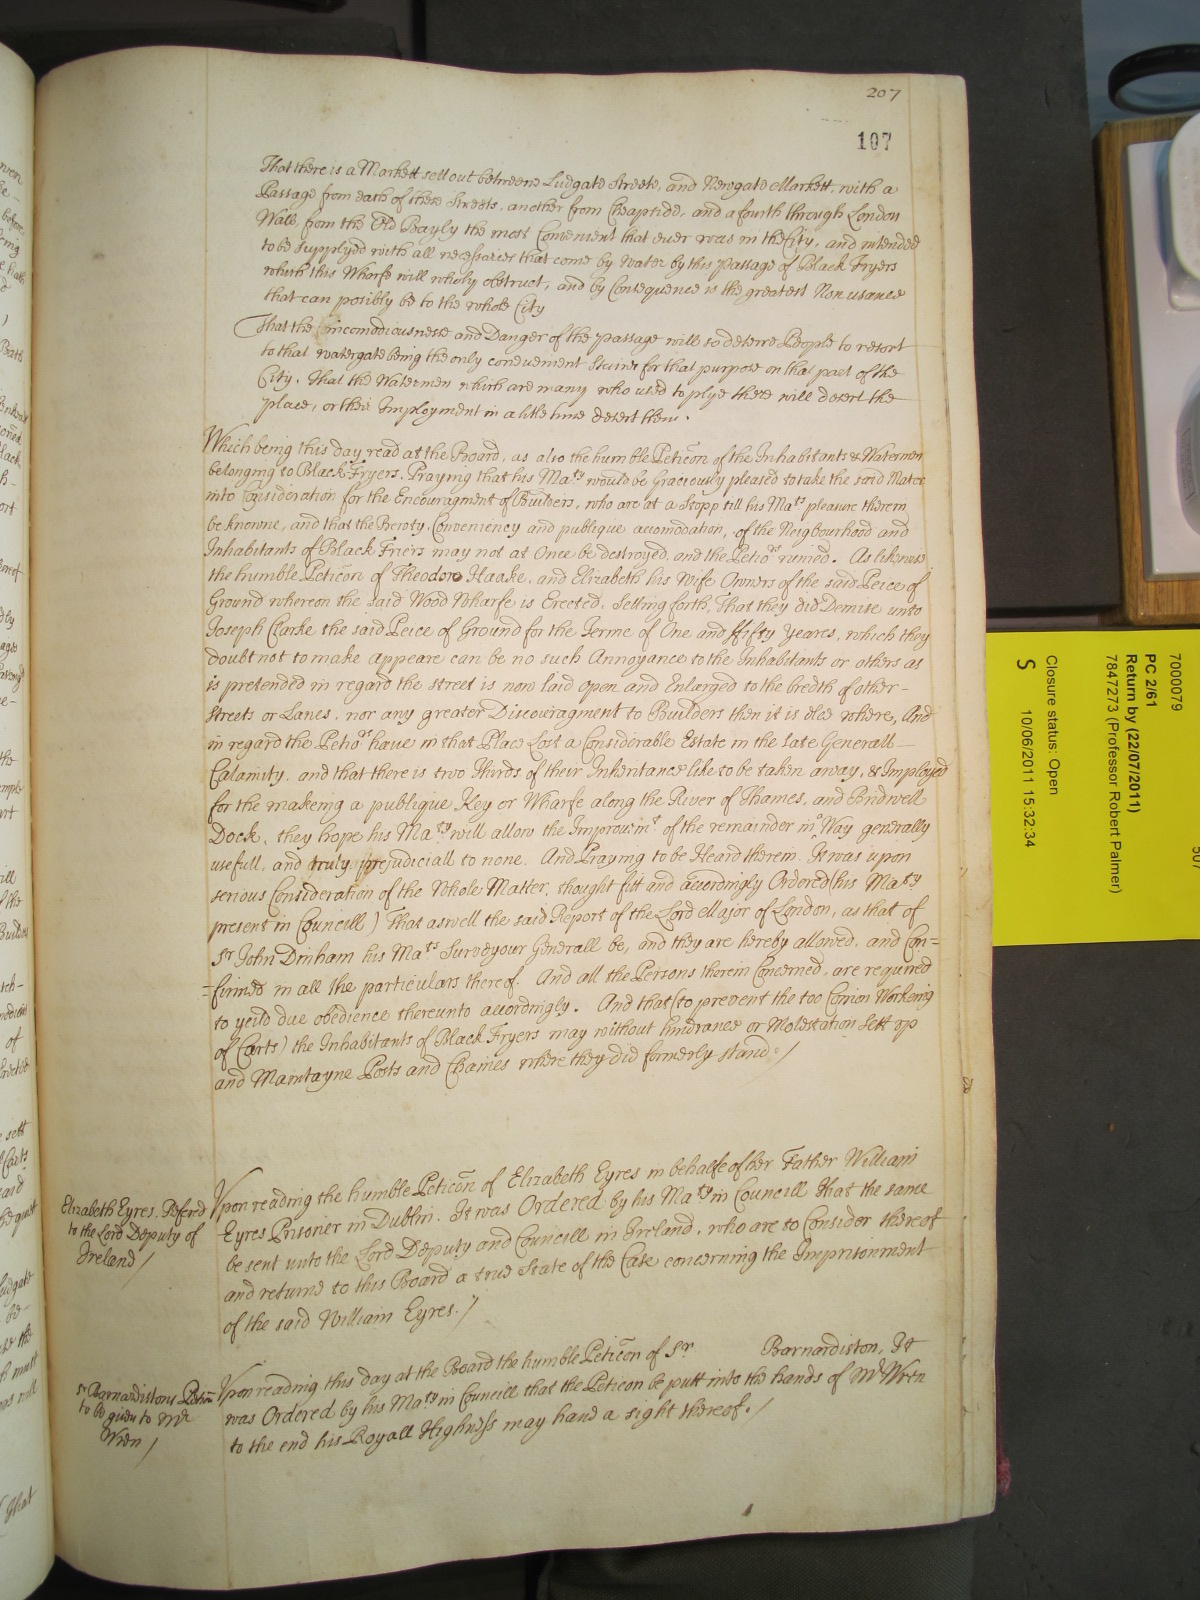 207
107
That there is a Markett sett out betweene Ludgate Streete, and Newgate Markett, with a
Passage from each of these Streets, another from Cheapside, and a fourth through London
Wall, from the Old Bayly the most Convenient that ever was in the City, and intended
to be supplyed with all necessaries that come by water by this passage of Black Fryers
which this Wharfe will wholy obstruct, and by Consequence is the greatest Nonusance
that can posibly be to the whole City
That the incomodiousnesse and Danger of the passage will so deterre People to resort
to that watergate being the only convenient Staires for that purpose on that part of the
City. That the Watermen which are many who used to plye there will desert the
place, or their Imployment in a litle time desert them.
Which being this day read at the Board, as also the humble Peticon of the Inhabitants & Watermen
belonging to Black Fryers, Praying that his Maty would be Graciously pleased to take the said Matter
into Consideration for the Encouragment of Builders, who are at a Stopp till his Mats pleasure therein
be knowne, and that the Bewty, Conveniency and publique acomodation, of the Neigbourhood and
Inhabitants of Black Friers may not at Once be destroyed, and the Petiors ruined. As likewise
the humble Peticon of Theodore Haake, and Elizabeth his Wife Owners of the said Peice of
Ground whereon the said Wood Wharfe is Erected, Setting forth, That they did Demise unto
Joseph Clarke the said Peice of Ground for the Terme of One and ffifty Yeares, which they
doubt not to make appeare can be no such Annoyance to the Inhabitants or others as
is pretended in regard the street is now laid open and Enlarged to the bredth of other-
Streets or Lanes, nor any greater Discouragment to Builders then it is else where, And
in regard the Petiors have in that Place Lost a Considerable Estate in the late Generall
Calamity, and that there is two Thirds of their Inheritance like to be taken away, & Imployed
for the makeing a publique Key or Wharfe along the River of Thames, and Bridwell
Dock, they hope his Maty will allow the Improvmt of the remainder in a Way generally
usefull, and truly prejudiciall to none. And Praying to be Heard therein. It was upon
serious Consideration of the Whole Matter, thought fitt and accordingly Ordered (his Maty
present in Councill) That aswell the said Report of the Lord Major of London, as that of
Sr John Dinham his Mats Surveyour Generall be, and they are hereby allowed, and Con=
=firmed in all the particulars thereof. And all the Persons therein Concerned, are required
to yeild due obedience thereunto accordingly. And that (to prevent the too Comon Workeing
of Carts) the Inhabitants of Black Fryers may without hindrance or Molestation Sett up
and Mamtayne Posts and Chaines where they did formerly stand./
Elizabeth Eyres. Refered
to the Lord Deputy of
Ireland/
Upon reading the humble Peticon of Elizabeth Eyres in behalfe of her Father William
Eyres Prisoner in Dublin. It was Ordered by his Maty in Councill That the same
be sent unto the Lord Deputy and Councill in Ireland, who are to Consider thereof
and returne to this Board a true State of the Case concerning the Imprisonment
of the said William Eyres./
Sr Barnardistons Peticon
to be given to Mr
Wren/
Upon reading this day at the Board the humble Peticon of Sr Barnardiston, It
was Ordered by his Maty in Councill that the Peticon be putt into the hands of Mr Wren
to the end his Royall Highness may have a sight thereof./
7000079
PC 2/61
Return by (22/07/2011)
7847273 (Professor Robert Palmer)
Closure status: Open
S 10/06/2011 15:32:34